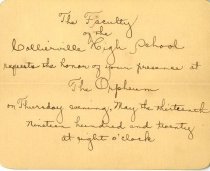 The Faculty
of the
Collierville High School
requests the honor of your presence at
The Orpheum
on Thursday evening, May the thirteenth
Nineteen hundred and twenty
at eight o'clock